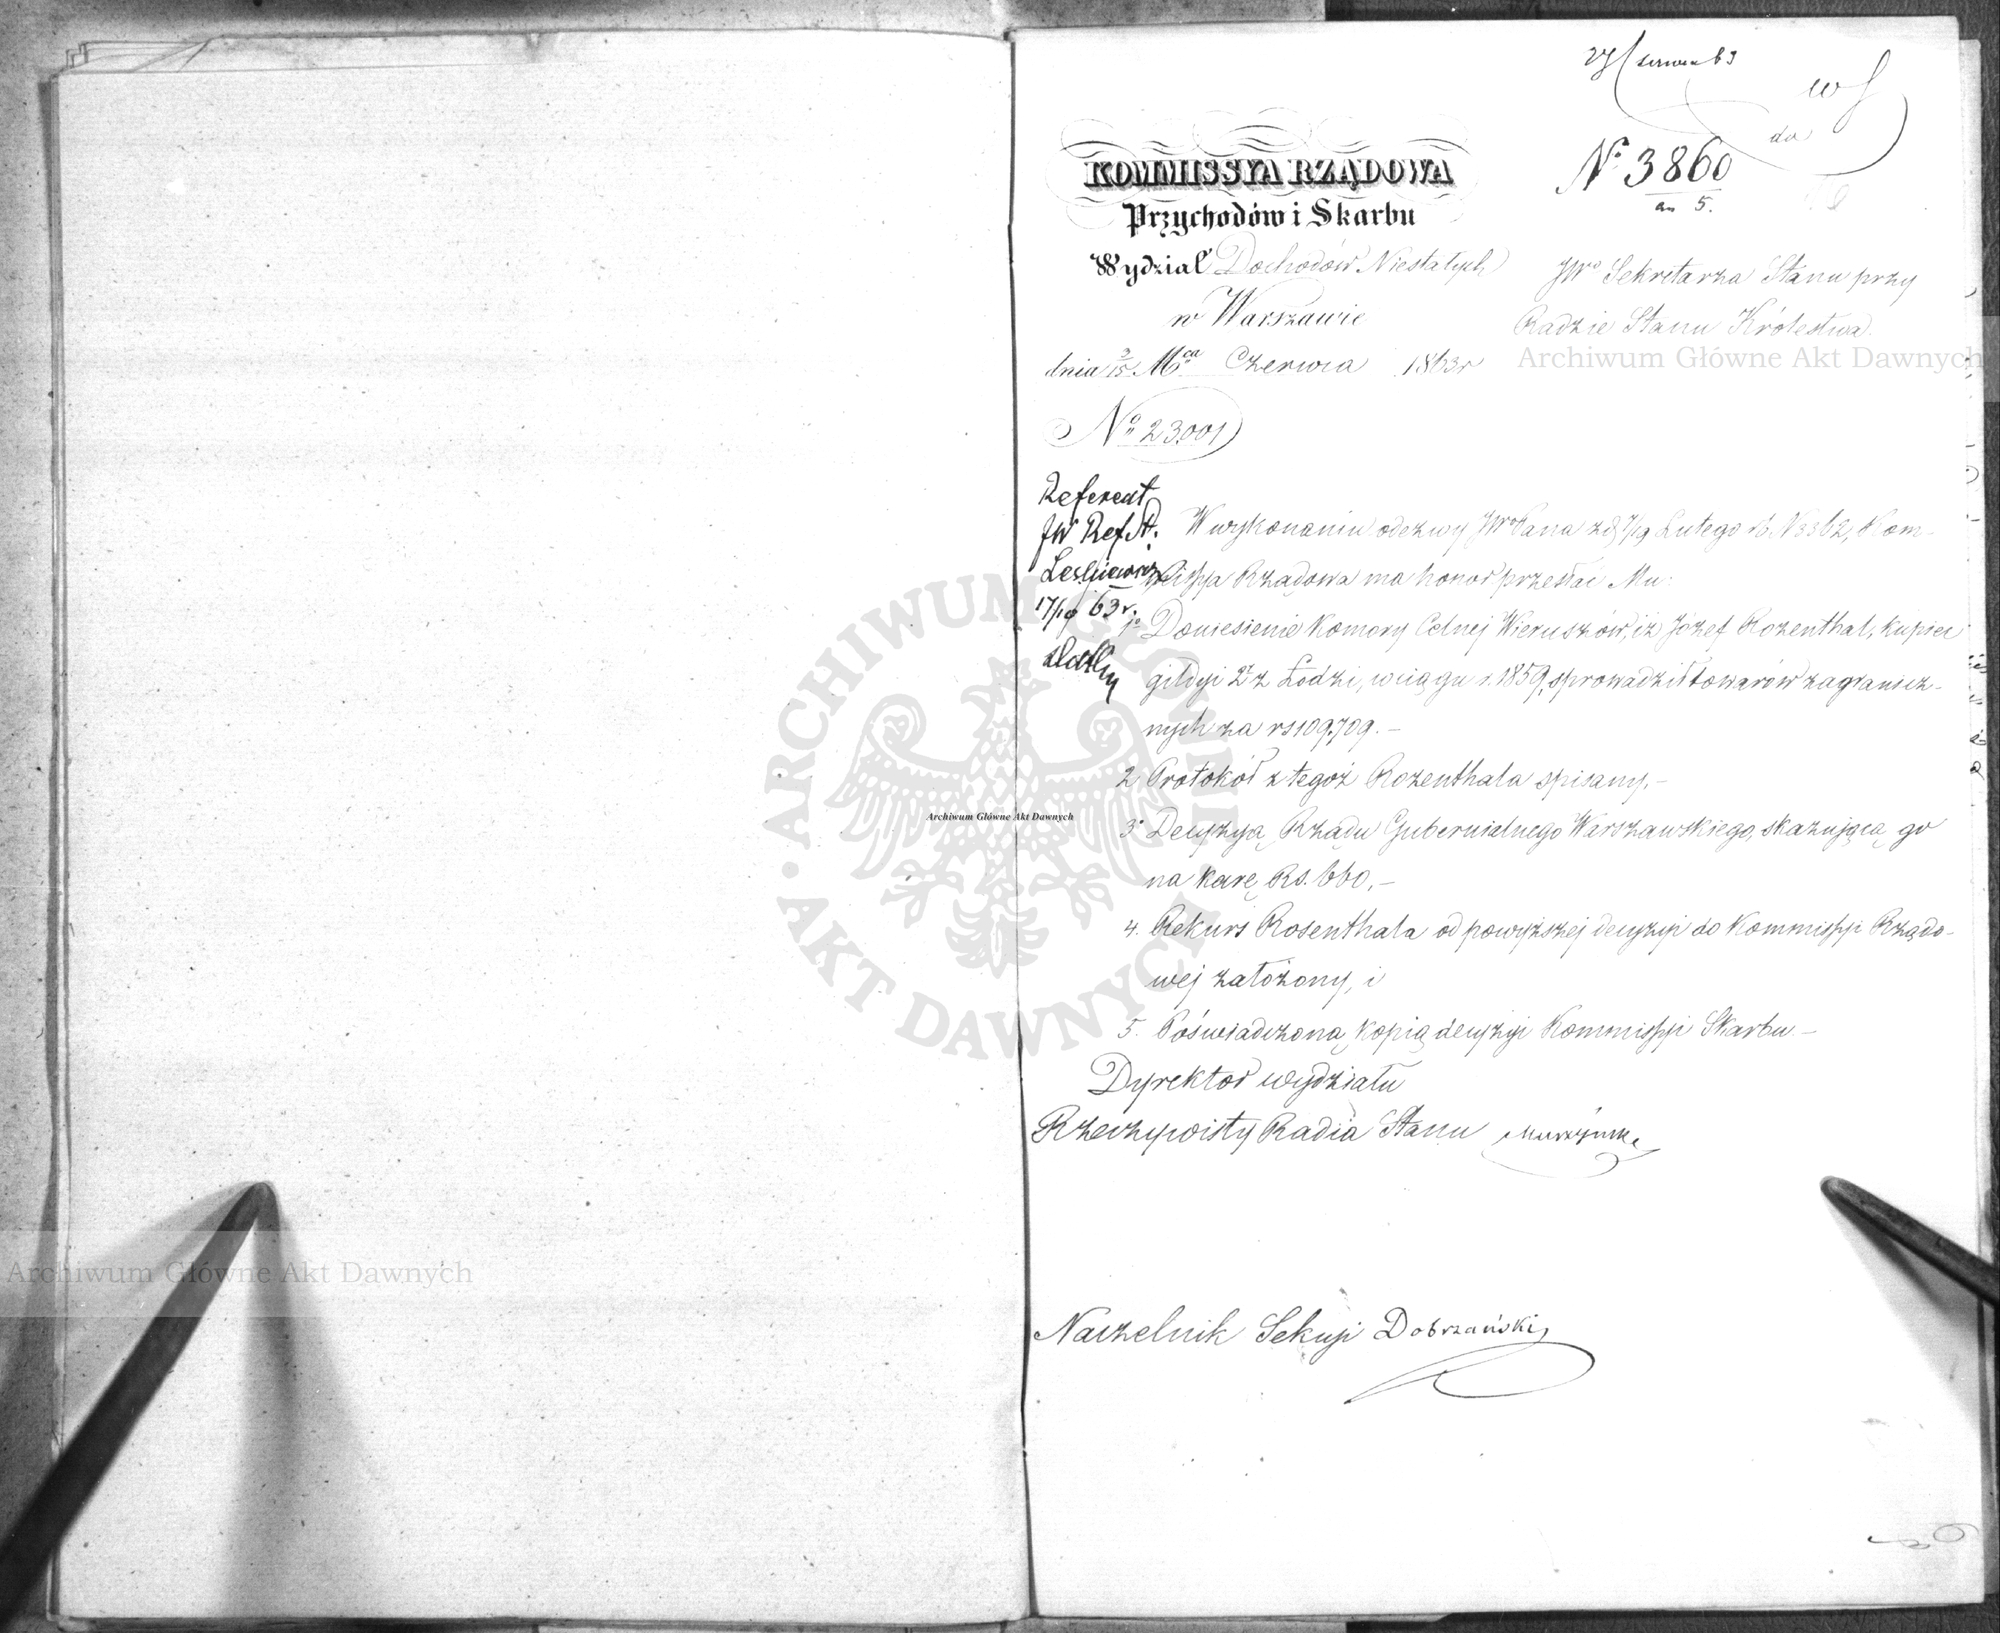 27 Czerwca 63
do
KOMMISSYA RZĄDOWA
Przychodów i Skarbu
Wydział Dochodów Niestałych
w Warszawie
dnia 3/15 Mca Czerwca 1863 r
No 23.001
No 3860
an 5.
JWo Sekretarza Stanu przy
Radzie Stanu Królestwa.
Referent
JW Ref. St.
17/19 63 r.
W wykonaniu odezwy JWo Pana z d. 7/19 Lutego rb. N 3362, Kom-
missya Rządowa ma honor przesłać Mu:
1o Doniesienie Komory Celnej Wieruszów, iż Józef Rozenthal, kupiec
gildyi 2 z Łodzi, w ciągu r. 1859, sprowadził towarów zagranicz-
nych za rs 109,709. –
2 Protokół z tegoż Rozenthala spisany. –
3o Decyzyą Rządu Gubernialnego Warszawskiego, skazującą go
na karę Rs. 660, –
4. Rekurs Rosenthala od powyższej decyzyi do Kommissyi Rządo-
wej założony, i
5. Poświadczoną kopią decyzyi Kommissyi Skarbu –
Dyrektor wydziału
Rzeczywisty Radca Stanu
Naczelnik Sekcyi Dobrzański
Archiwum Główne Akt Dawnych
Archiwum Główne Akt Dawnych
Archiwum Główne Akt Dawnych
ARCHIWUM GŁÓWNE · AKT DAWNYCH ·